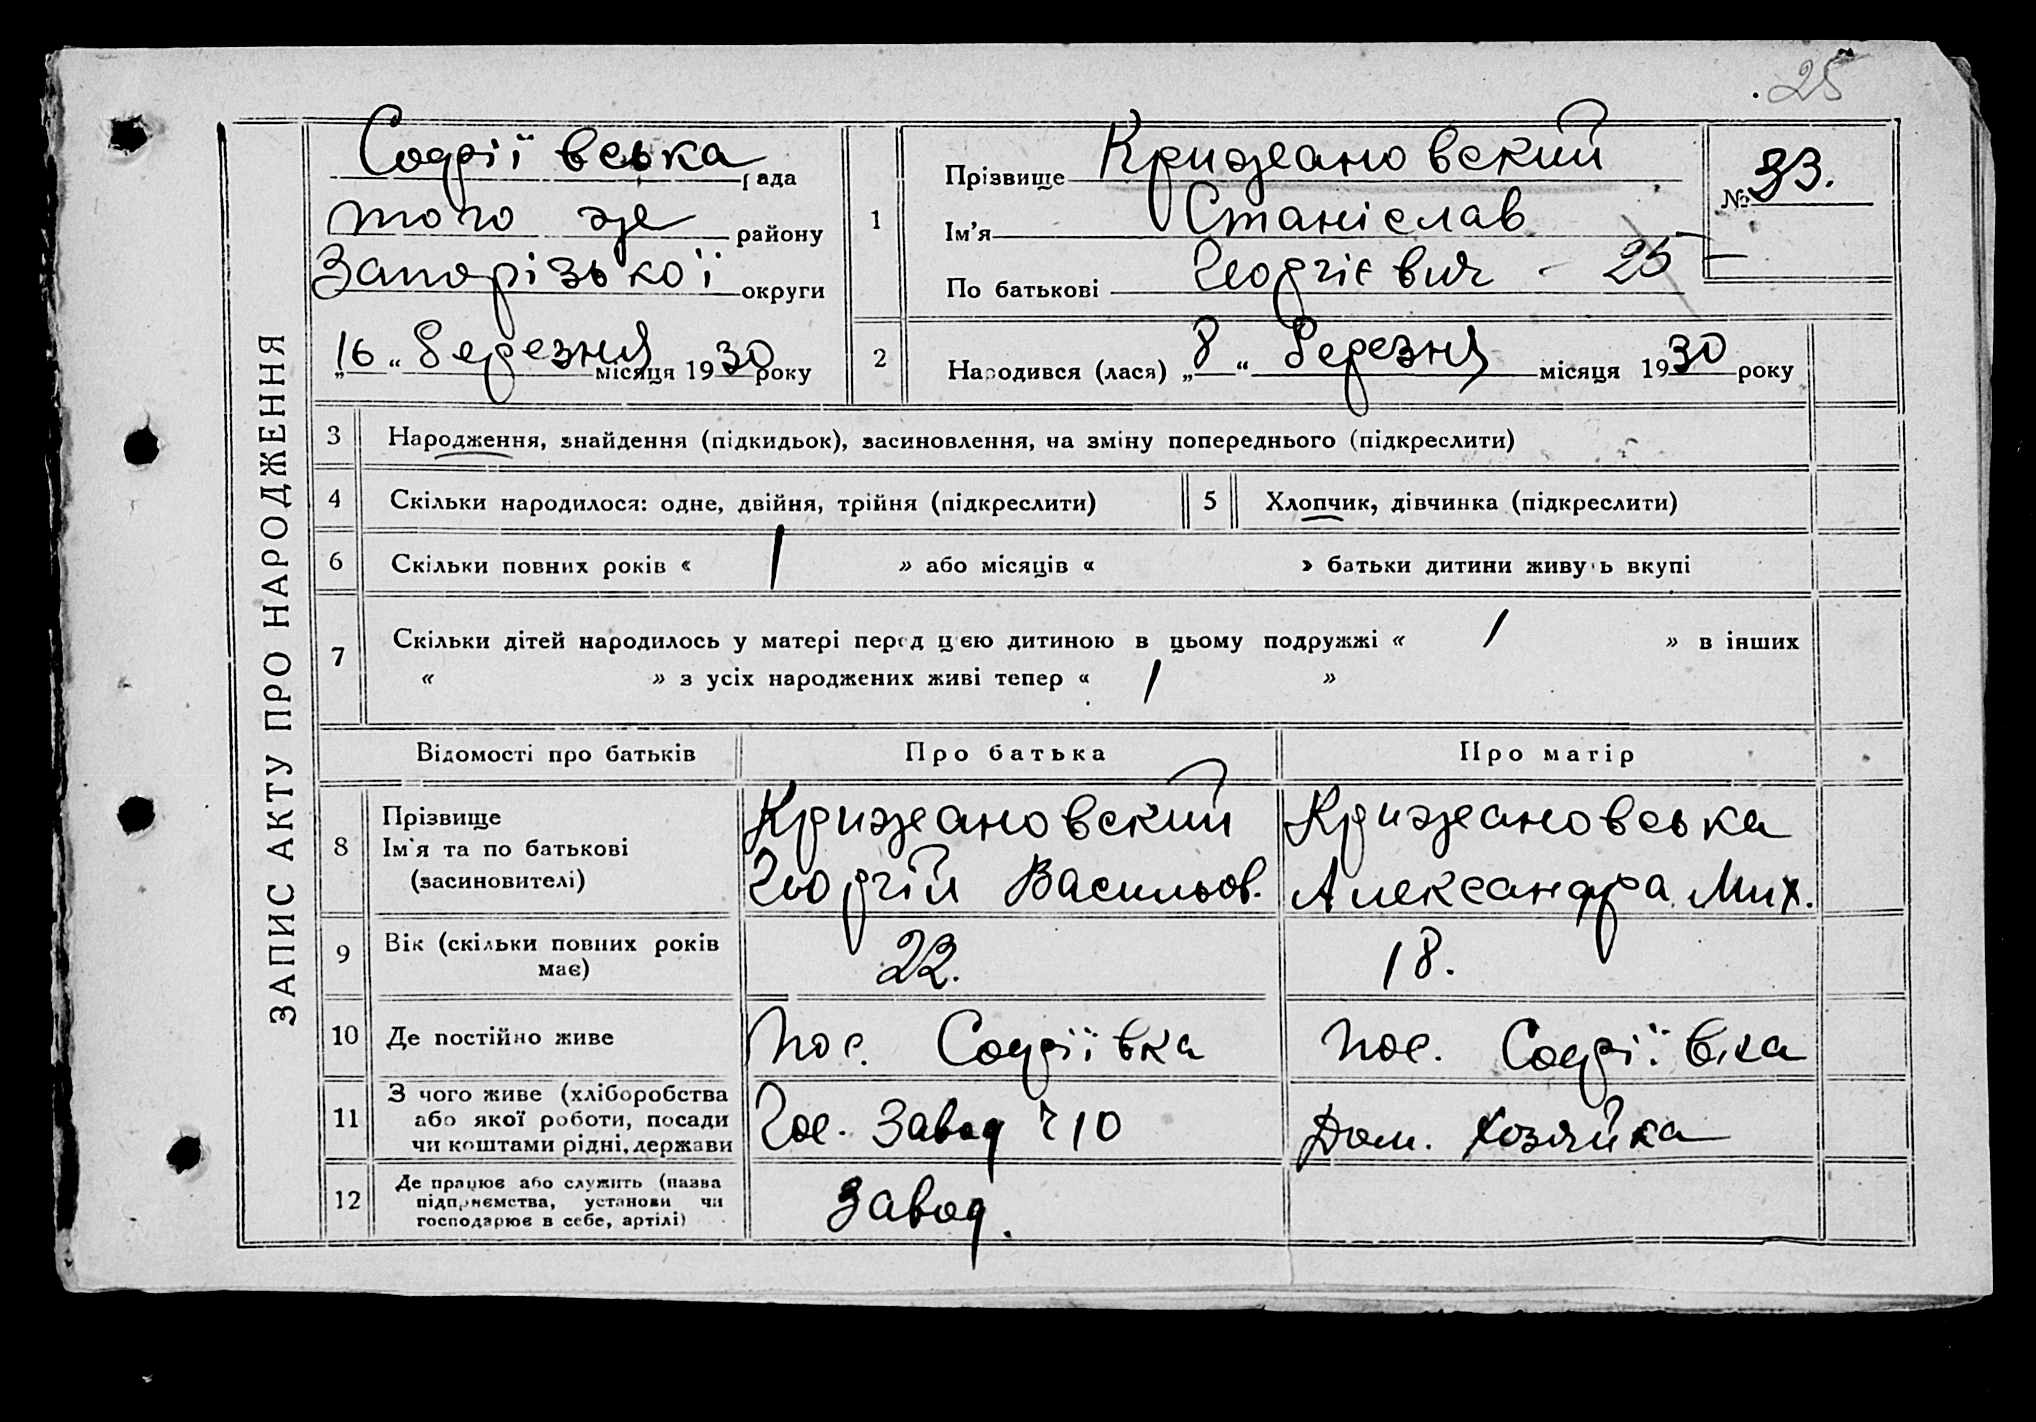 25
ЗАПИС АКТУ ПРО НАРОДЖЕННЯ
Софіївська рада
того же району
Запорізької округи
„16“ березня місяця 1930 року
1
Прізвище Крижановский
Ім'я Станіслав
По батькові Георгієвич - 25
№ 33.
2
Народився (лася) „8“ березня місяця 1930 року
3 Народження, знайдення (підкидьок), засиновлення, на зміну попереднього (підкреслити)
4 Скільки народилося: одне, двійня, трійня (підкреслити) 5 Хлопчик, дівчинка (підкреслити)
6 Скільки повних років « 1 » або місяців « » батьки дитини живуть вкупі
7 Скільки дітей народилось у матері перед цією дитиною в цьому подружжі « 1 » в інших
« » з усіх народжених живі тепер « 1 »
Відомості про батьків Про батька Про матір
8 Прізвище
Ім'я та по батькові
(засиновителі)
Крижановский
Георгій Васильов.
Крижановська
Александра Мих.
9 Вік (скільки повних років
має)
22.
18.
10 Де постійно живе пос. Софіївка пос. Софіївка
11 З чого живе (хліборобства
або якої роботи, посади
чи коштами рідні, держави
Гос. Завод ч 10
Дом. хозяйка
12 Де працює або служить (назва
підприємства, установи чи
господарює в себе, артілі)
Завод.